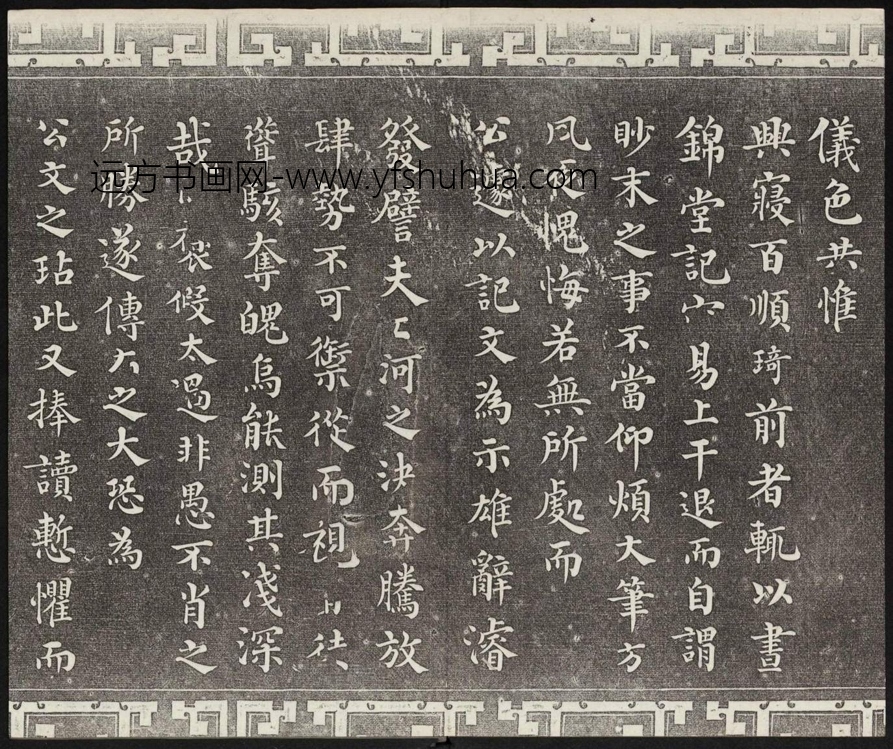 儀色共惟
興寢百順琦前者輒以晝
錦堂記易上干退而自謂
眇末之事不當仰煩大筆方
愧悔若無所處而
公遽以記文為示雄辭濬
發譬夫河之決奔騰放
肆勢不可禦從而視徒
聳駭奪魄烏能測其淺深
哉褒假太過非愚不肖之
所勝遂傳之大恐為
公文之玷此又捧讀慙懼而
远方书画网-www.yfshuhua.com